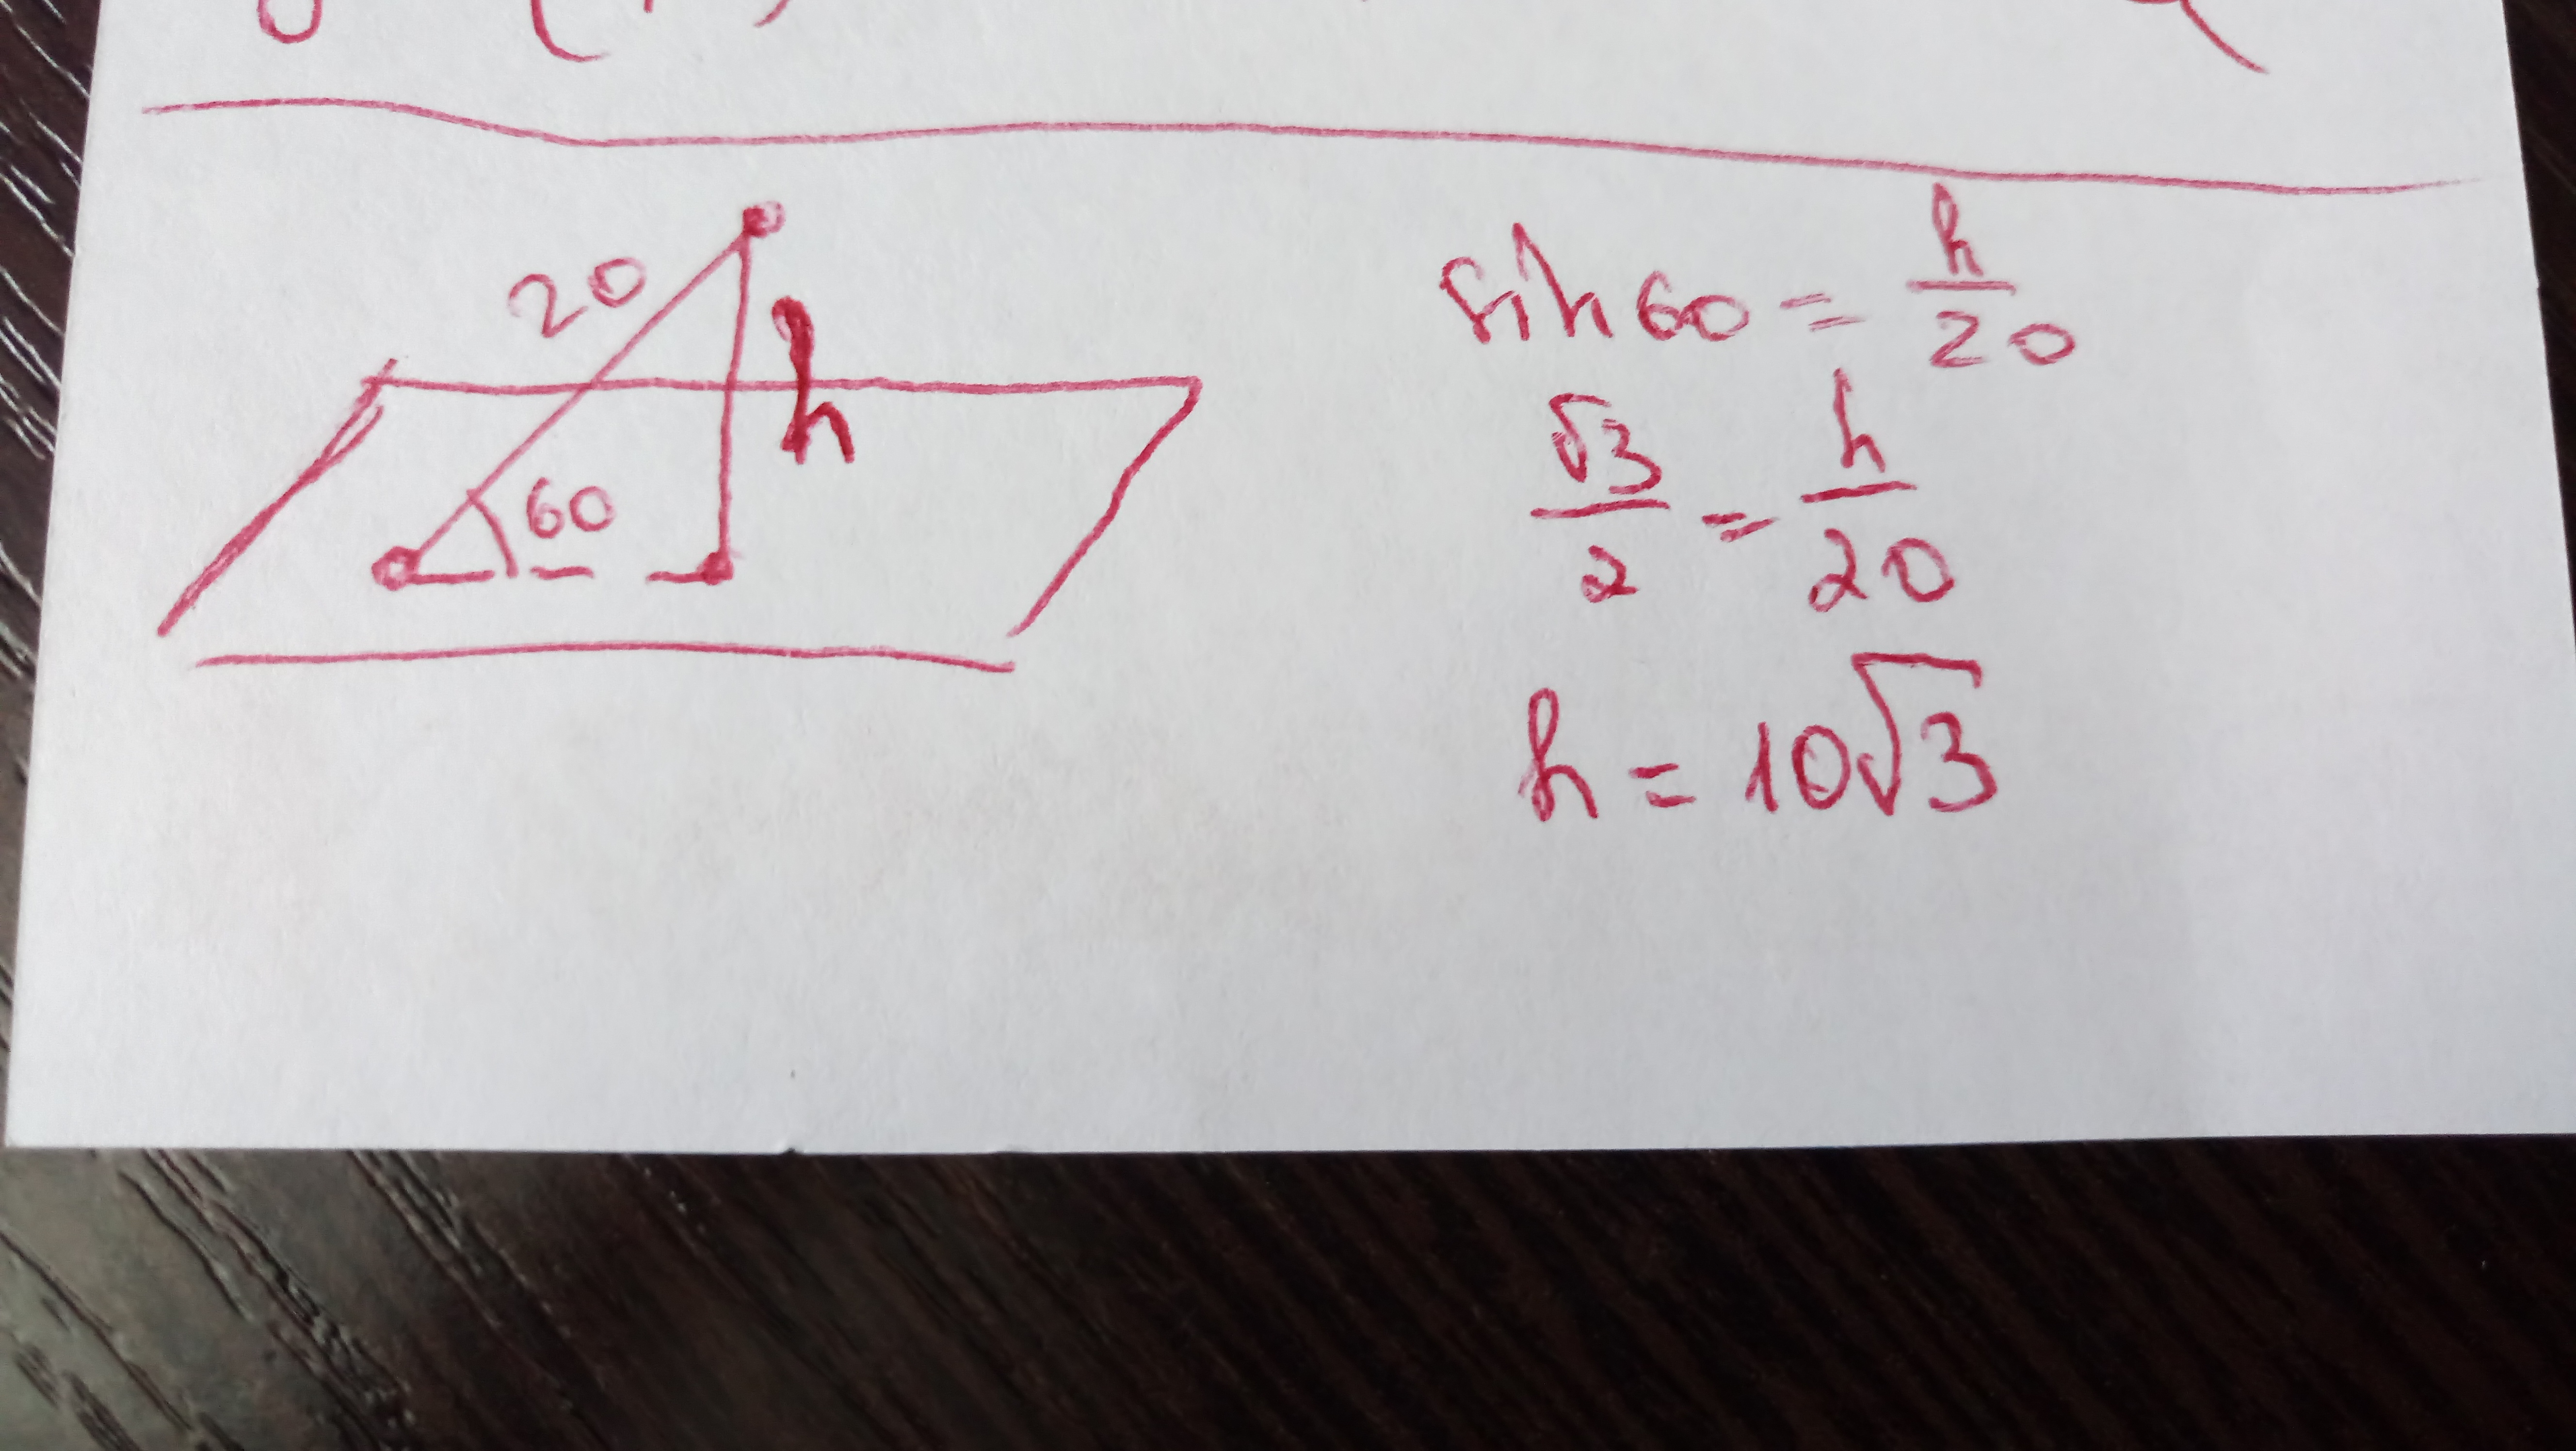 20
h
60
sin 60 = h/20
√3/2 = h/20
h = 10√3